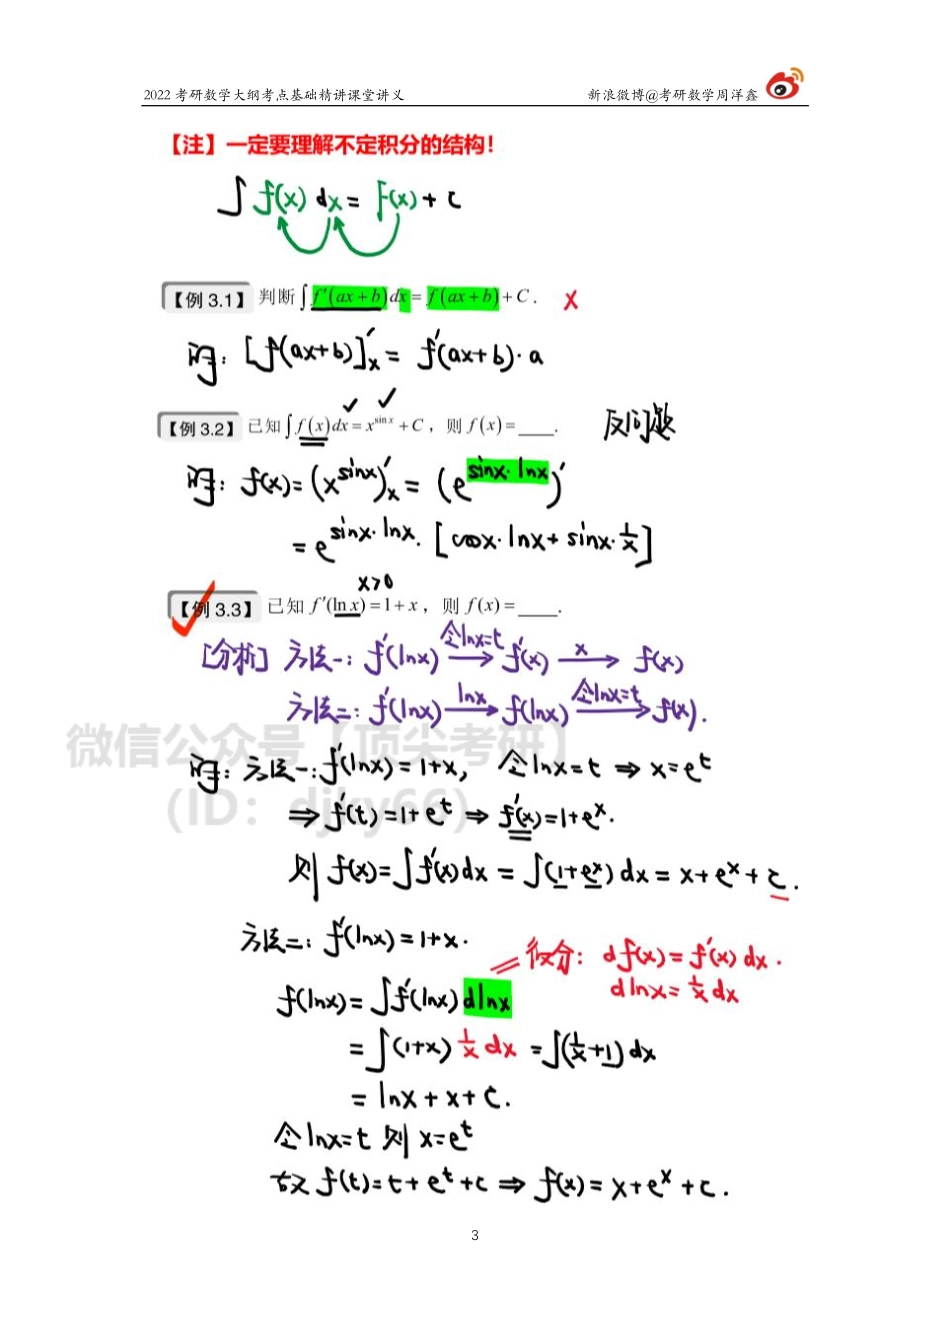 2022 考研数学大纲考点基础精讲课堂讲义 新浪微博@考研数学周洋鑫
【注】一定要理解不定积分的结构！
∫ f(x) dx = F(x) + C
【例 3.1】 判断 ∫ f′(ax+b)dx = f(ax+b)+C． ×
解: [f(ax+b)]′x = f′(ax+b)·a
【例 3.2】 已知 ∫ f(x)dx = x^{sin x} + C，则 f(x) = ____． 反问题
解: f(x) = (x^{sinx})′x = (e^{sinx·lnx})′
= e^{sinx·lnx}·[cosx·lnx + sinx·1/x]
x>0
【例 3.3】 已知 f′(ln x) = 1 + x，则 f(x) = ____．
[分析] 方法一: f′(lnx) 令lnx=t → f′(x) x → f(x)
方法二: f′(lnx) lnx → f(lnx) 令lnx=t → f(x).
微信公众号【顶尖考研】
(ID: djky66)
解: 方法一: f′(lnx) = 1+x, 令lnx=t ⇒ x=e^t
⇒ f′(t) = 1+e^t ⇒ f′(x) = 1+e^x.
则 f(x) = ∫f′(x)dx = ∫(1+e^x)dx = x+e^x+C.
方法二: f′(lnx) = 1+x.
微分: df(x) = f′(x)dx.
dlnx = 1/x dx
f(lnx) = ∫f′(lnx)dlnx
= ∫(1+x) 1/x dx = ∫(1/x+1)dx
= lnx + x + C.
令lnx=t 则 x=e^t
故 f(t) = t+e^t+C ⇒ f(x) = x+e^x+C.
3